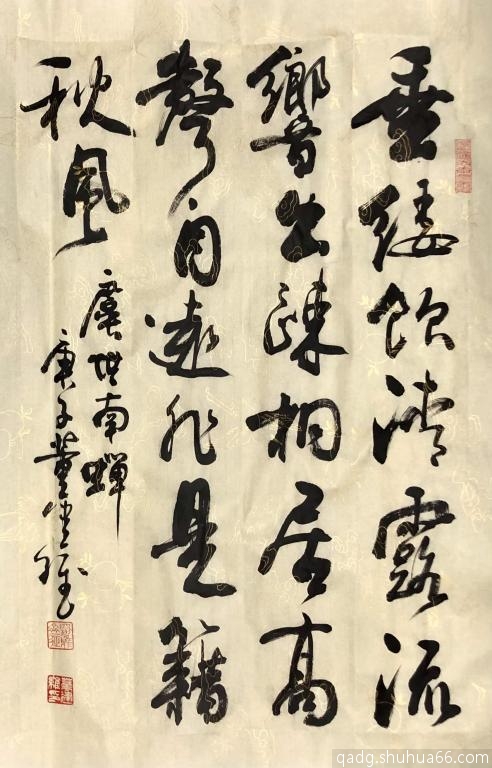 垂緌飲清露流
響出疎桐居高
聲自遠非是籍
秋風
虞世南蟬
庚子董
qadg.shuhua66.com